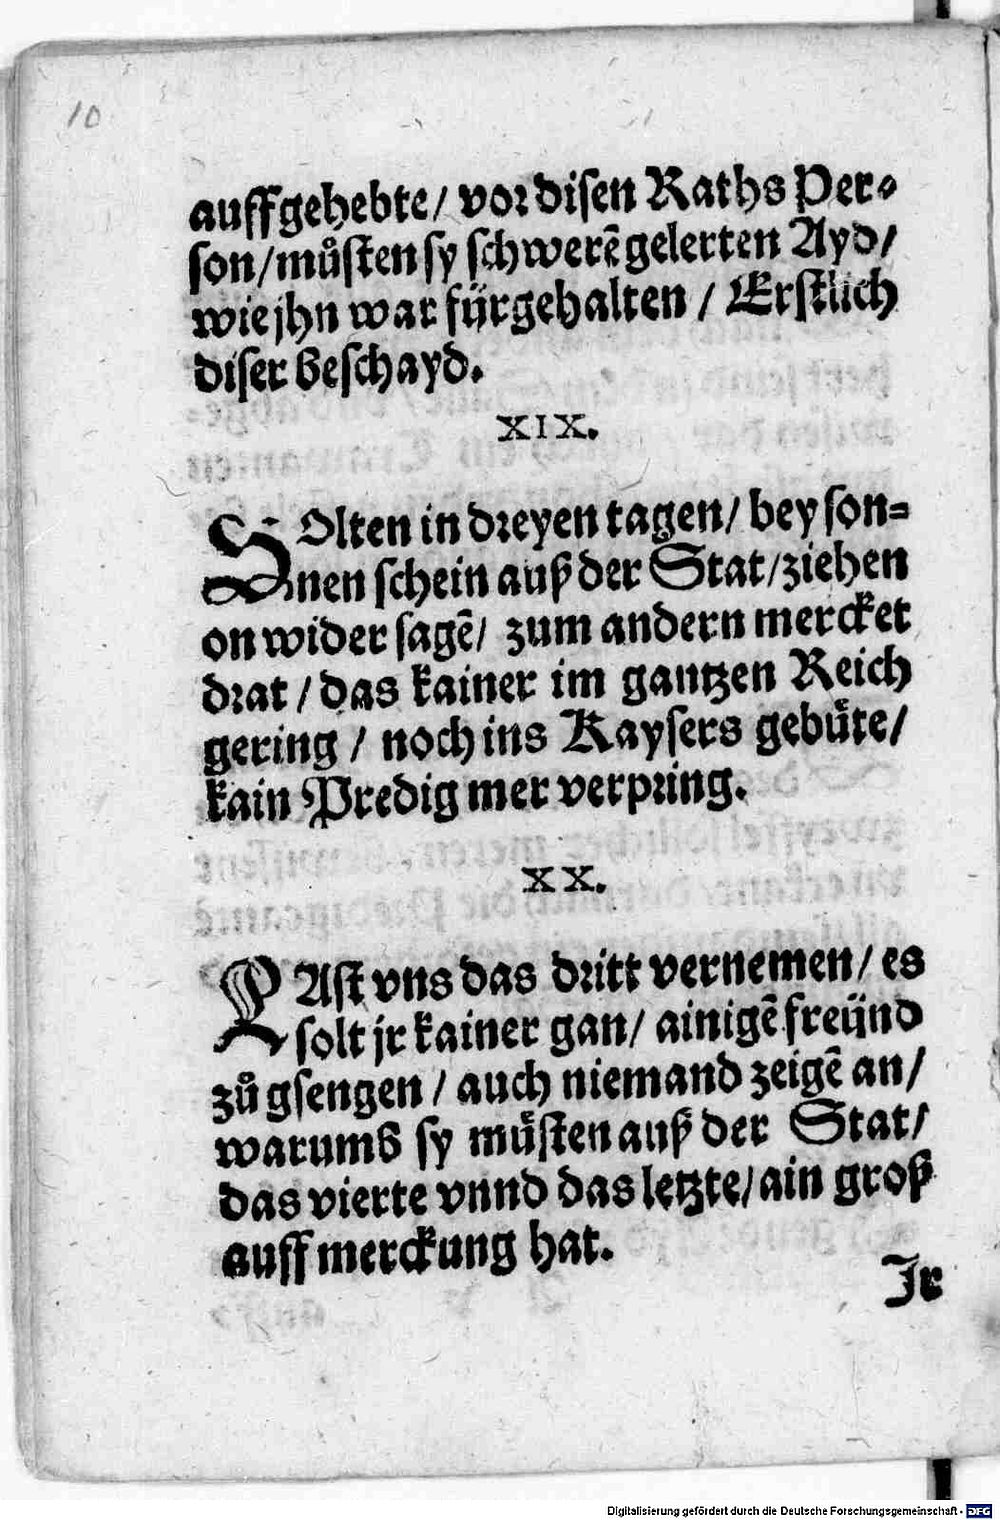 10
auffgehebte/ vor disen Raths Per⸗
son/müͦsten sy schwerē gelerten Ayd/
wie jhn war fürgehalten / Erstlich
diser beschayd.
XIX.
SOlten in dreyen tagen/ bey son⸗
nen schein auß der Stat/ziehen
on wider sagē/ zum andern mercket
drat / das kainer im gantzen Reich
gering / noch ins Kaysers gebüte/
kain Predig mer verpring.
XX.
LAst vns das dritt vernemen/ es
solt jr kainer gan/ ainigē freünd
zuͦ gsengen / auch niemand zeigē an/
warumb sy müsten auß der Stat/
das vierte vnnd das letzte/ ain groß
auff merckung hat.
Jr
Digitalisierung gefördert durch die Deutsche Forschungsgemeinschaft - DFG